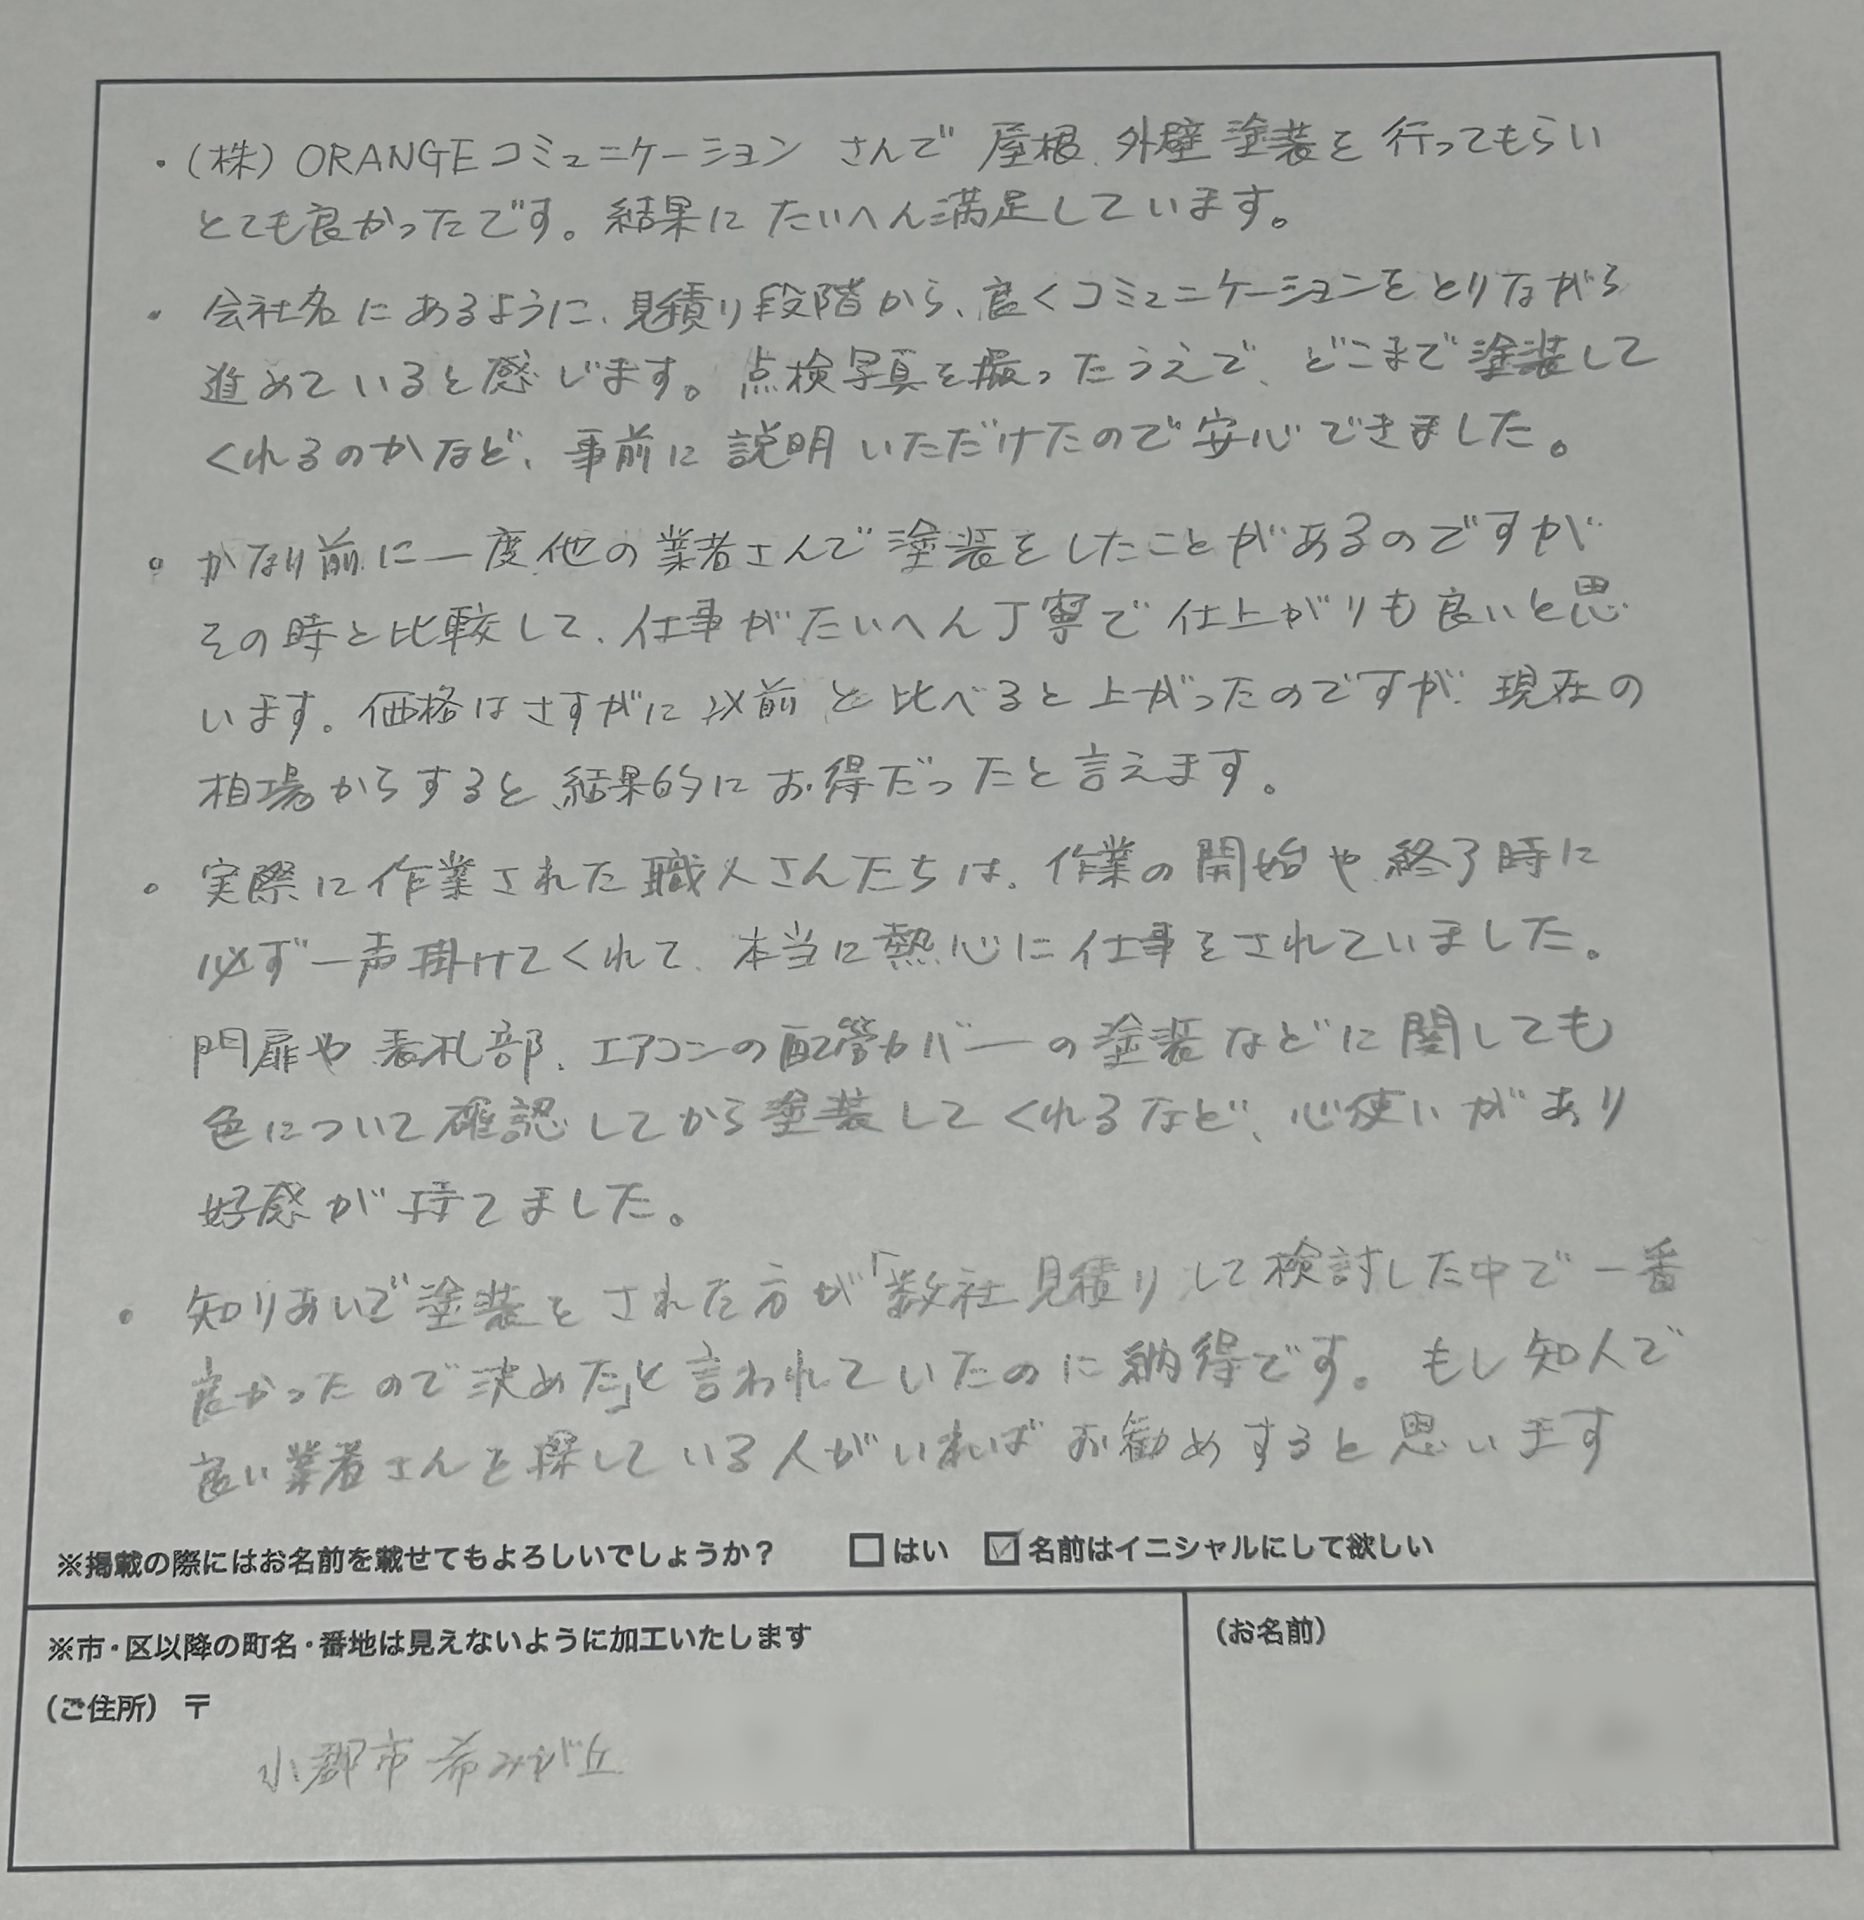 ・(株)ORANGEコミュニケーションさんで屋根、外壁塗装を行ってもらい
とても良かったです。結果にたいへん満足しています。
・会社名にあるように、見積り段階から、良くコミュニケーションをとりながら
進めていると感じます。点検写真を撮ったうえで、どこまで塗装して
くれるのかなど、事前に説明いただけたので安心できました。
。かなり前に一度他の業者さんで塗装をしたことがあるのですが
その時と比較して、仕事がたいへん丁寧で仕上がりも良いと思
います。価格はさすがに以前と比べると上がったのですが、現在の
相場からすると、結果的にお得だったと言えます。
。実際に作業された職人さんたちは、作業の開始や終了時に
必ず一声掛けてくれて、本当に熱心に仕事をされていました。
門扉や表札部、エアコンの配管カバーの塗装などに関しても
色について確認してから塗装してくれるなど、心使いがあり
好感が持てました。
・知りあいで塗装をされた方が「数社見積りして検討した中で一番
良かったので決めた」と言われていたのに納得です。もし知人で
良い業者さんを探している人がいればお勧めすると思います
※掲載の際にはお名前を載せてもよろしいでしょうか？ □はい ☑名前はイニシャルにして欲しい
※市・区以降の町名・番地は見えないように加工いたします
(お名前)
(ご住所) 〒
小郡市希みが丘